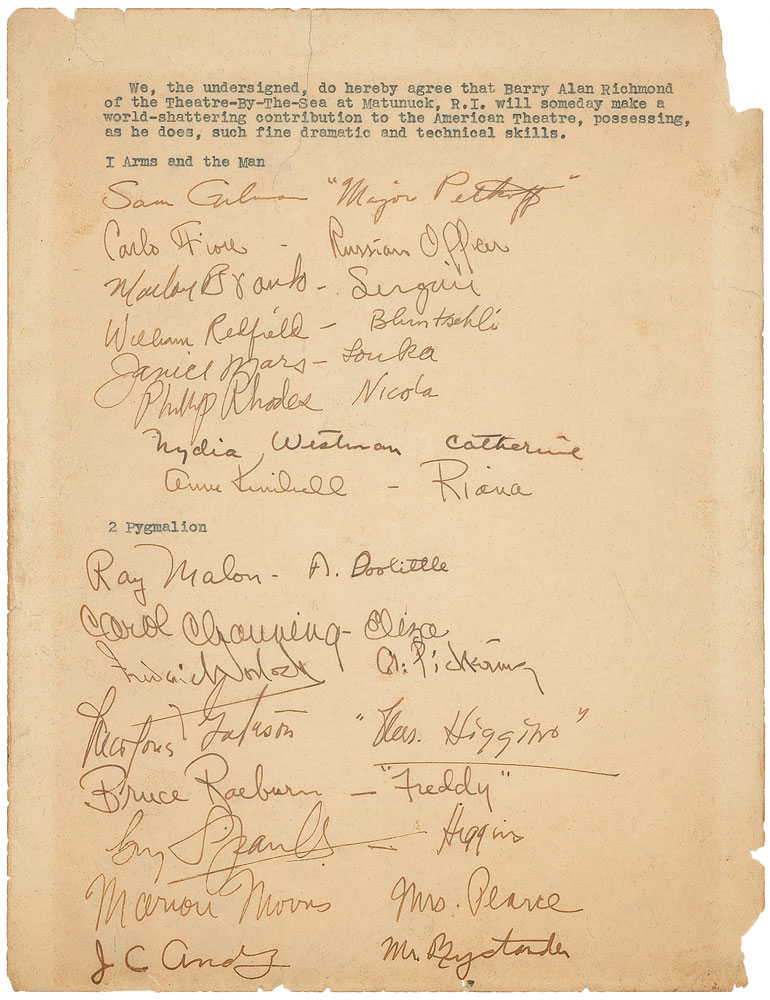 We, the undersigned, do hereby agree that Barry Alan Richmond
of the Theatre-By-The-Sea at Matunuck, R.I. will someday make a
world-shattering contribution to the American Theatre, possessing,
as he does, such fine dramatic and technical skills.
I Arms and the Man
Sam Gilman "Major Petkoff"
Carlo Fiore - Russian Officer
Marlon Brando - Sergius
William Redfield - Bluntschli
Janice Mars - Louka
Phillip Rhodes Nicola
Nydia Westman Catherine
Anne Kimbell - Riana
2 Pygmalion
Ray Malon - A. Doolittle
Carol Channing - Eliza
Pickering
"Mrs. Higgins"
Bruce Raeburn - "Freddy"
Guy - Higgins
Marion Morris Mrs. Pearce
J C Mr. Bystander